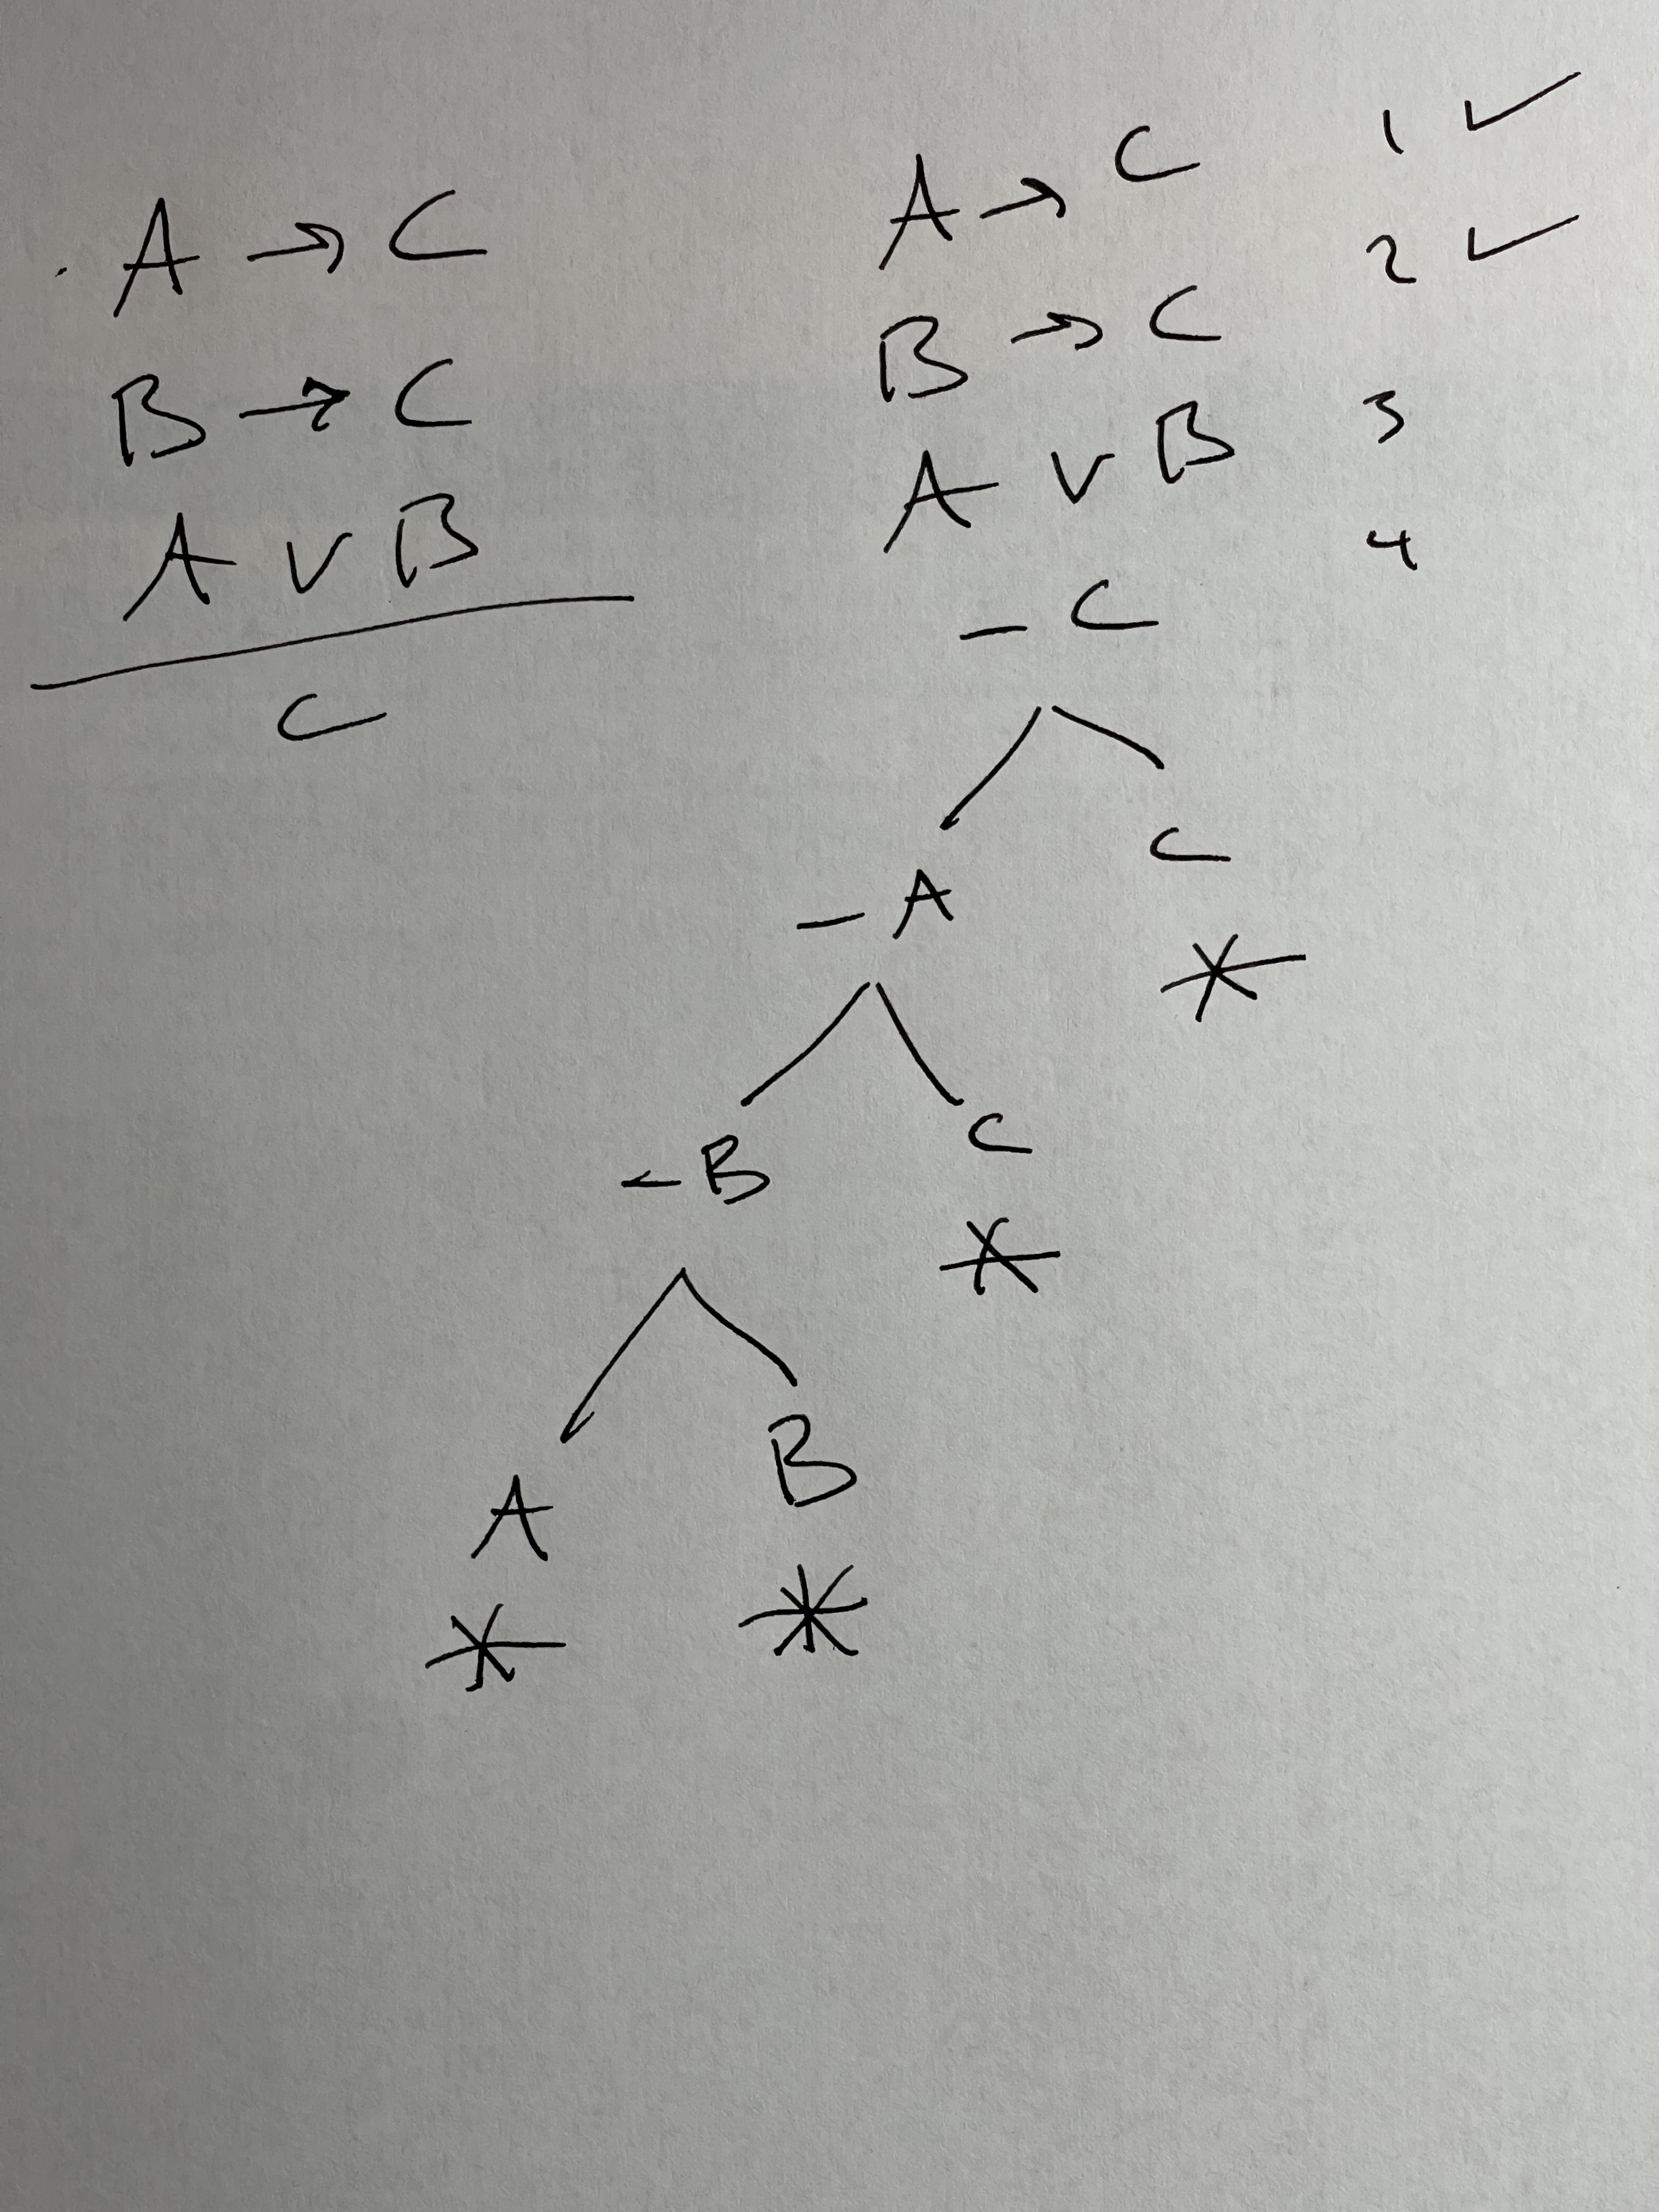 A → C
B → C
A ∨ B
C
A → C 1 ✓
B → C 2 ✓
A ∨ B 3
– C 4
– A C
*
– B C
*
A B
* *